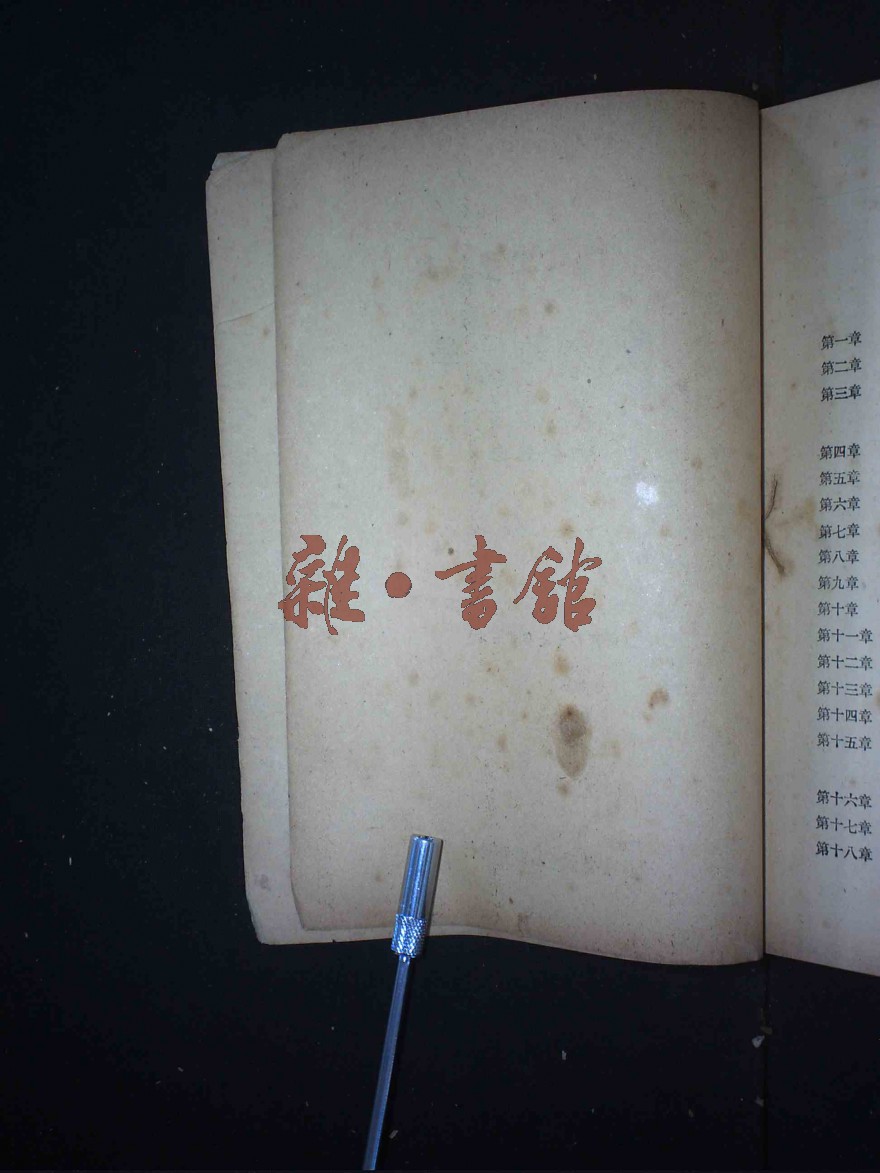 雜·書館
第一章
第二章
第三章
第四章
第五章
第六章
第七章
第八章
第九章
第十章
第十一章
第十二章
第十三章
第十四章
第十五章
第十六章
第十七章
第十八章